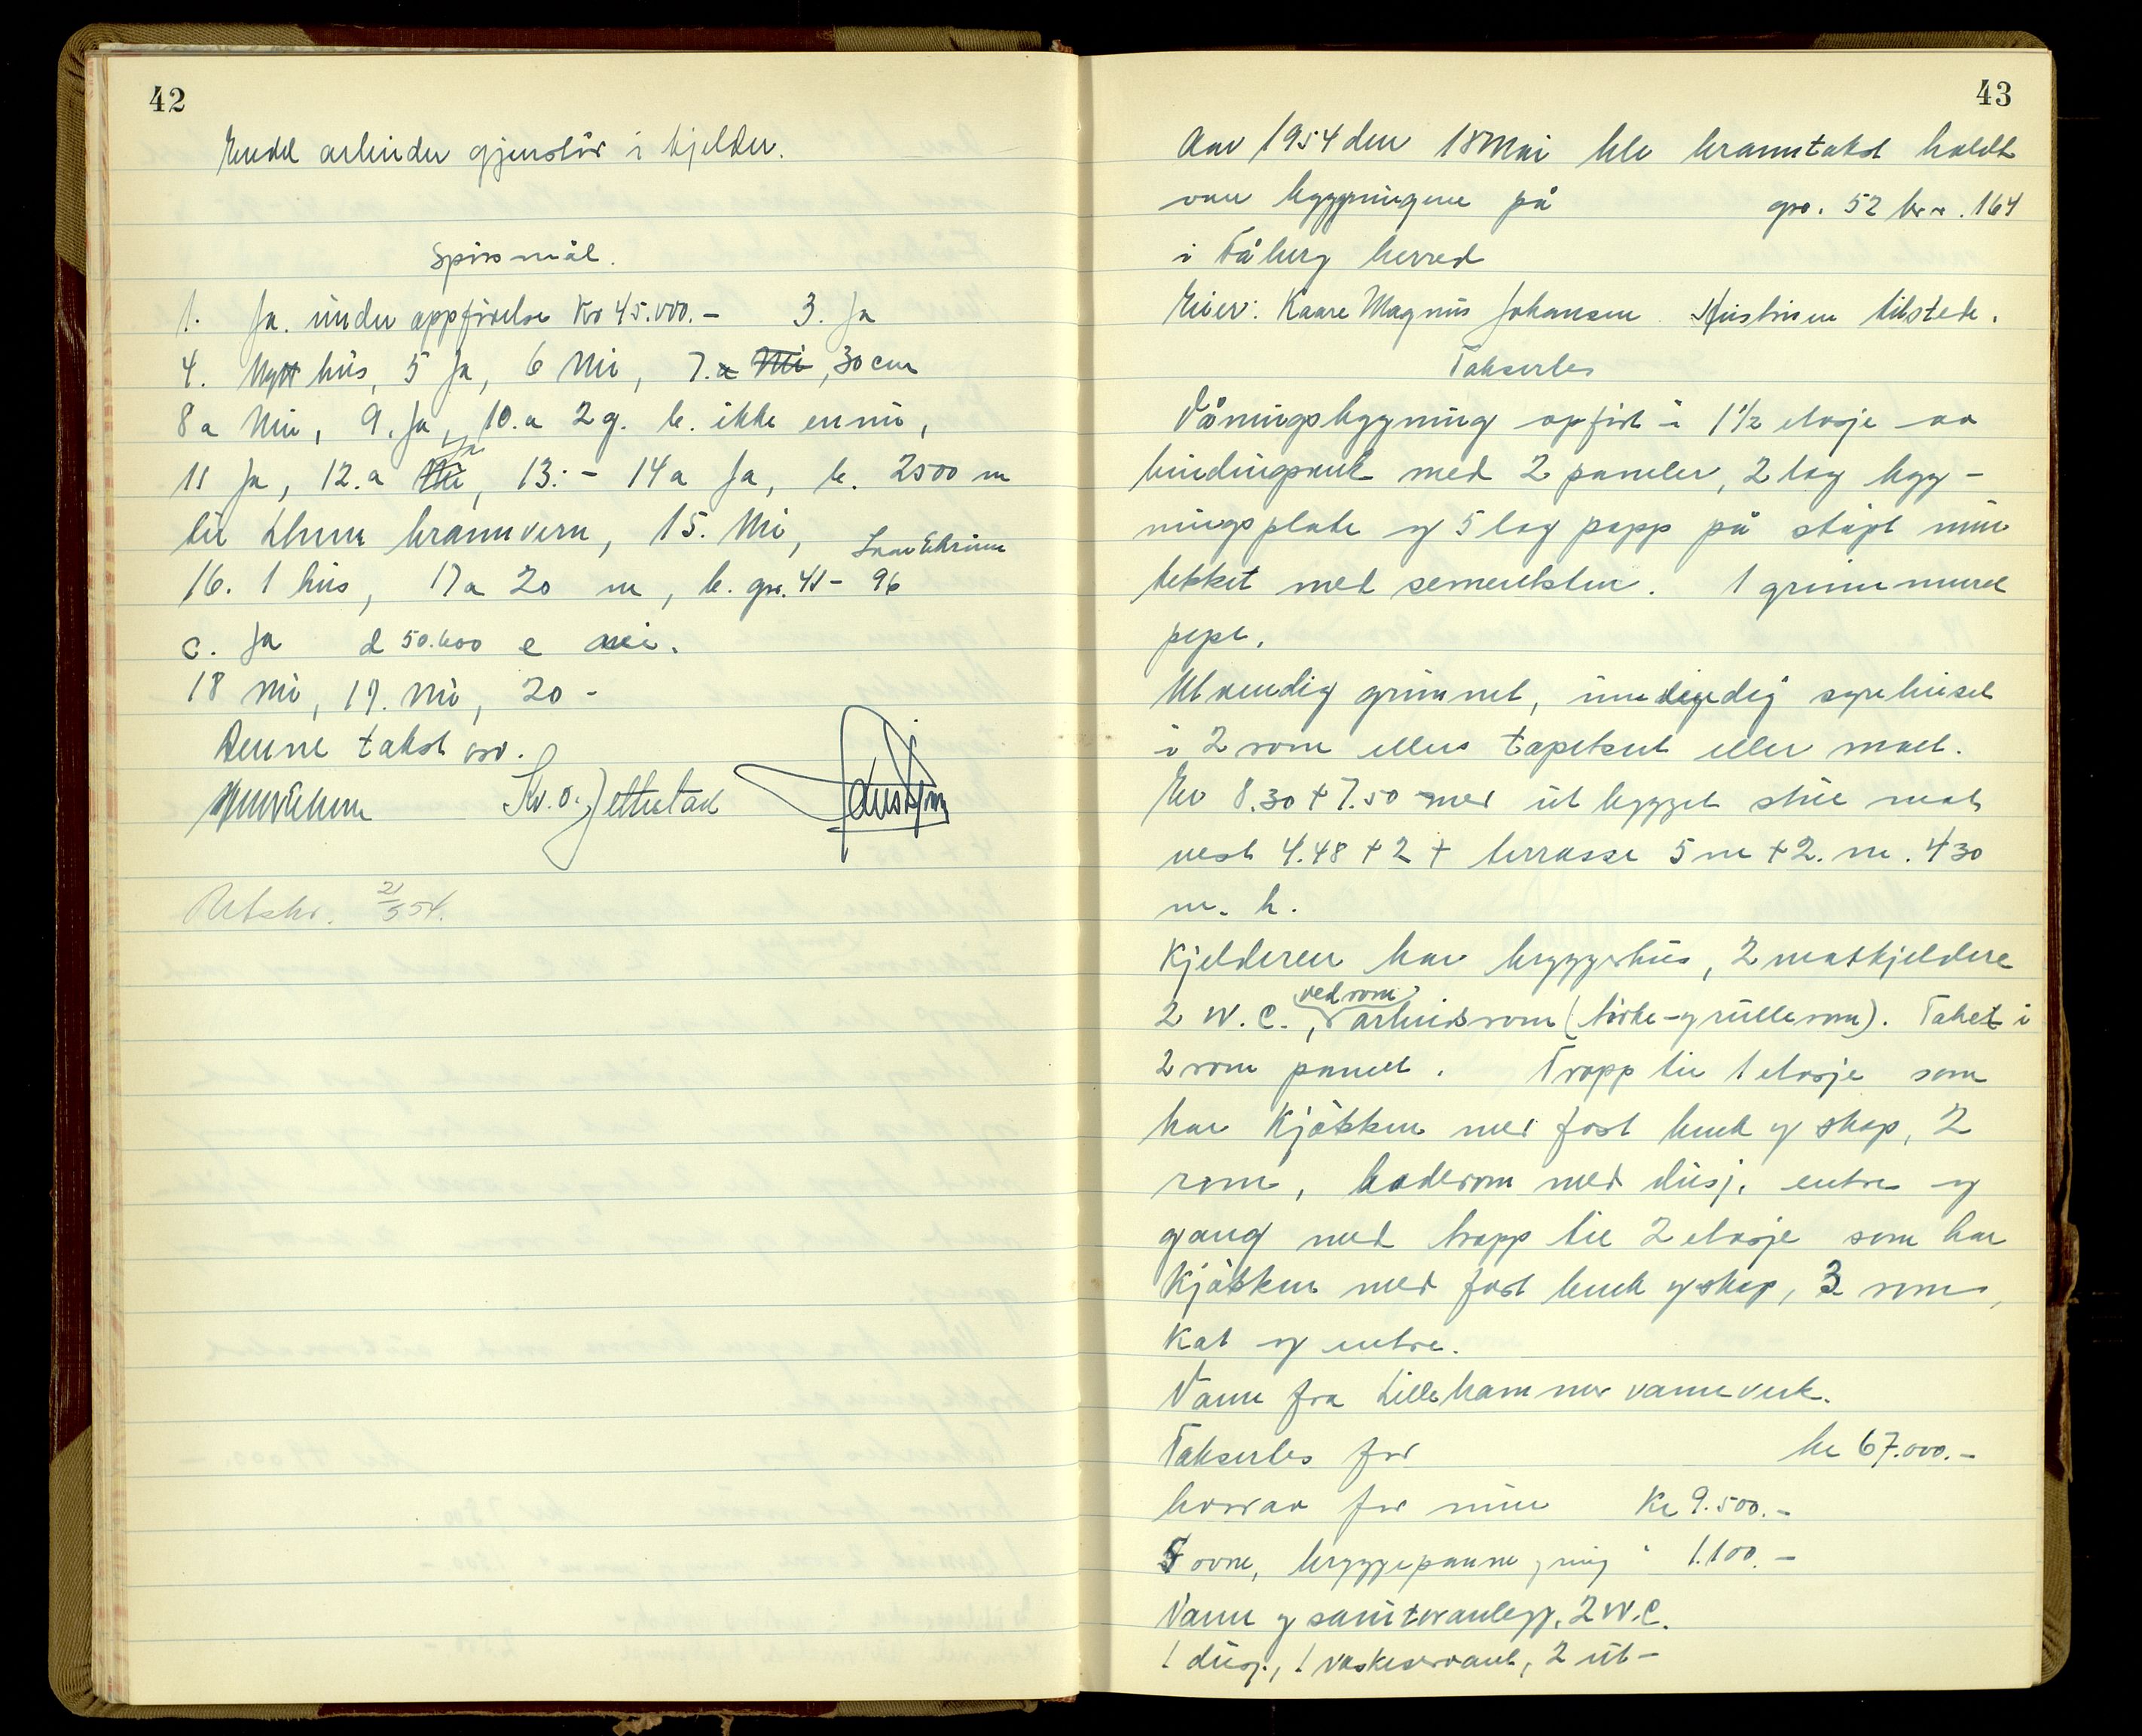 42
Endel arbeider gjenstår i kjelder.
Spørsmål.
1. Ja. under oppførelse Kr 45.000.- 3. Ja
4. Nytt hus, 5 Ja, 6 Nei, 7. a Nei, 30 cm
8 a Nei, 9. Ja, 10. a 2 g. b. ikke ennu,
Ja
11 Ja, 12. a Nei, 13. - 14 a Ja, b. 2500 m
til Lhmr brannvern, 15. Nei,
16. 1 hus, 17 a 20 m, b. gnr. 41 - 96
c. Ja d 50.600 e nei.
18 Nei, 19. Nei, 20 -
Denne takst osv.
Utskr. 21/5 54.
43
Aar 1954 den 18 Mai ble branntakst holdt
over byggningene på gnr. 52 br nr. 164
i Fåberg herred
Eier: Kaare Magnus Johansen Hustruen tilstede.
Takserles
Våningsbyggning opført i 1 1/2 etasje av
bindingsverk med 2 paneler, 2 lag bygg-
ningsplate og 5 lag papp på støpt mur
tekket med sementsten. 1 grunnmuret
pipe.
Utvendig grunnet, innvendig
i 2 rom ellers tapetsert eller malt.
Er 8.30 + 7.50 med utbygget stue mot
vest 4.48 + 2 + terrasse 5 m + 2. m. 430
m. h.
Kjelderen har bryggerhus, 2 matkjeldere
vedrom
2 W.C., arbeidsrom (tørke- og rullerom). Taket i
2 rom panelt. Trapp til 1 etasje som
har Kjøkken med fast benk og skap, 2
rom, baderom med dusj, entre og
gang med trapp til 2 etasje som har
Kjøkken med fast benk og skap, 3 rom,
kot og entre.
Vann fra Lillehammer vannverk.
Takserles for kr 67.000.-
hvorav for mur Kr 9.500.-
5 ovne, bryggepanne, ring " 1.100.-
Vann og sanitæranlegg, 2 W.C.
1 dusj., 1 vaskeservant, 2 ut-